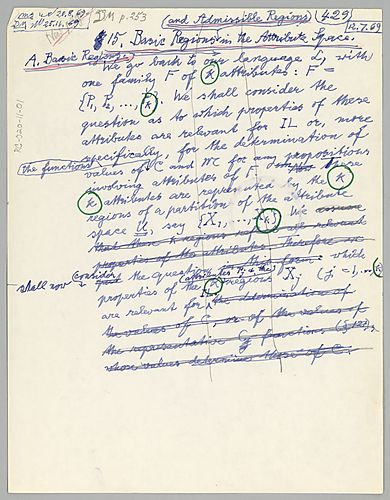 BM p.253
and Admissible Regions
429
R.7.69
§ 15. Basic Regions in the Attribute Space.
A. Basic Regions
We go back to our language L, with
one family F of k attributes: F =
{P1, P2, ..., Pk}. We shall consider the
question as to which properties of these
attributes are relevant for IL or, more
specifically, for the determination of
the functions
values of C and M for any propositions
involving attributes of F. These
k attributes are represented by the k
regions of a partition of the attribute
space U, say {X1, ..., Xk}. We assume
that these k regions represent all relevant
properties of the attributes. Therefore we
shall now consider the question in that form which
properties of the attributes Pj & the k regions Xj (j = 1, ... k
are relevant for the determination of
the values of C, or of the values of
the representative C function (§ 10),
whose values determine those of C.
RC-020-11-01